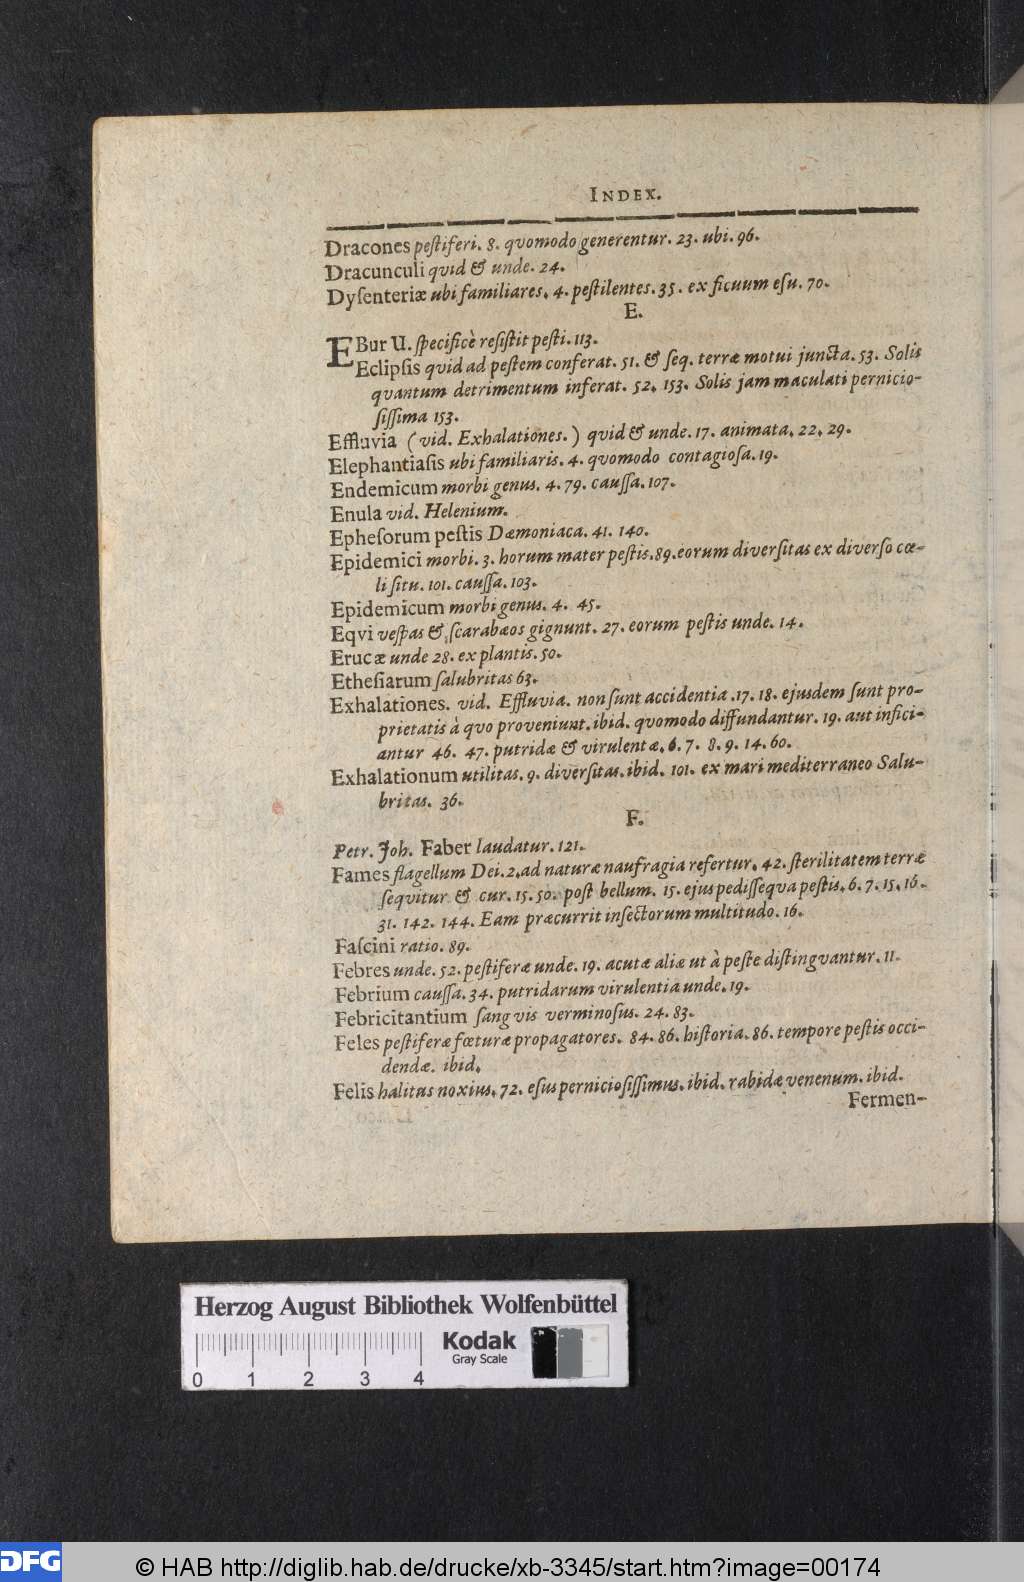 INDEX.
Dracones peſtiferi. 8. qvomodo generentur. 23. ubi. 96.
Dracunculi qvid & unde. 24.
Dyſenteriæ ubi familiares. 4. peſtilentes. 35. ex ficuum eſu. 70.
E.
EBur U. ſpecificè reſiſtit peſti. 113.
Eclipſis qvid ad peſtem conferat. 51. & ſeq. terræ motui juncta. 53. Solis
qvantum detrimentum inferat. 52. 153. Solis jam maculati pernicio-
ſiſſima 153.
Effluvia (vid. Exhalationes.) qvid & unde. 17. animata. 22. 29.
Elephantiaſis ubi familiaris. 4. qvomodo contagioſa. 19.
Endemicum morbi genus. 4. 79. cauſſa. 107.
Enula vid. Helenium.
Epheſorum peſtis Dæmoniaca. 41. 140.
Epidemici morbi. 3. horum mater peſtis. 89. eorum diverſitas ex diverſo cœ-
li ſitu. 101. cauſſa. 103.
Epidemicum morbi genus. 4. 45.
Eqvi veſpas & ſcarabæos gignunt. 27. eorum peſtis unde. 14.
Erucæ unde 28. ex plantis. 50.
Etheſiarum ſalubritas 63.
Exhalationes. vid. Effluvia. non ſunt accidentia. 17. 18. ejusdem ſunt pro-
prietatis à qvo proveniunt. ibid. qvomodo diffundantur. 19. aut infici-
antur 46. 47. putridæ & virulentæ. 6. 7. 8. 9. 14. 60.
Exhalationum utilitas. 9. diverſitas. ibid. 101. ex mari mediterraneo Salu-
britas. 36.
F.
Petr. Joh. Faber laudatur. 121.
Fames flagellum Dei. 2. ad naturæ naufragia refertur. 42. ſterilitatem terræ
ſeqvitur & cur. 15. 50. poſt bellum. 15. ejus pediſſeqva peſtis. 6. 7. 15. 16.
31. 142. 144. Eam præcurrit inſectorum multitudo. 16.
Faſcini ratio. 89.
Febres unde. 52. peſtiferæ unde. 19. acutæ aliæ ut à peſte diſtingvantur. 11.
Febrium cauſſa. 34. putridarum virulentia unde. 19.
Febricitantium ſangvis verminoſus. 24. 83.
Feles peſtiferæ fœturæ propagatores. 84. 86. hiſtoria. 86. tempore peſtis occi-
dendæ. ibid.
Felis halitus noxius. 72. eſus pernicioſiſſimus. ibid. rabidæ venenum. ibid.
Fermen-
Herzog August Bibliothek Wolfenbüttel
Kodak
Gray Scale
0 1 2 3 4
DFG © HAB http://diglib.hab.de/drucke/xb-3345/start.htm?image=00174